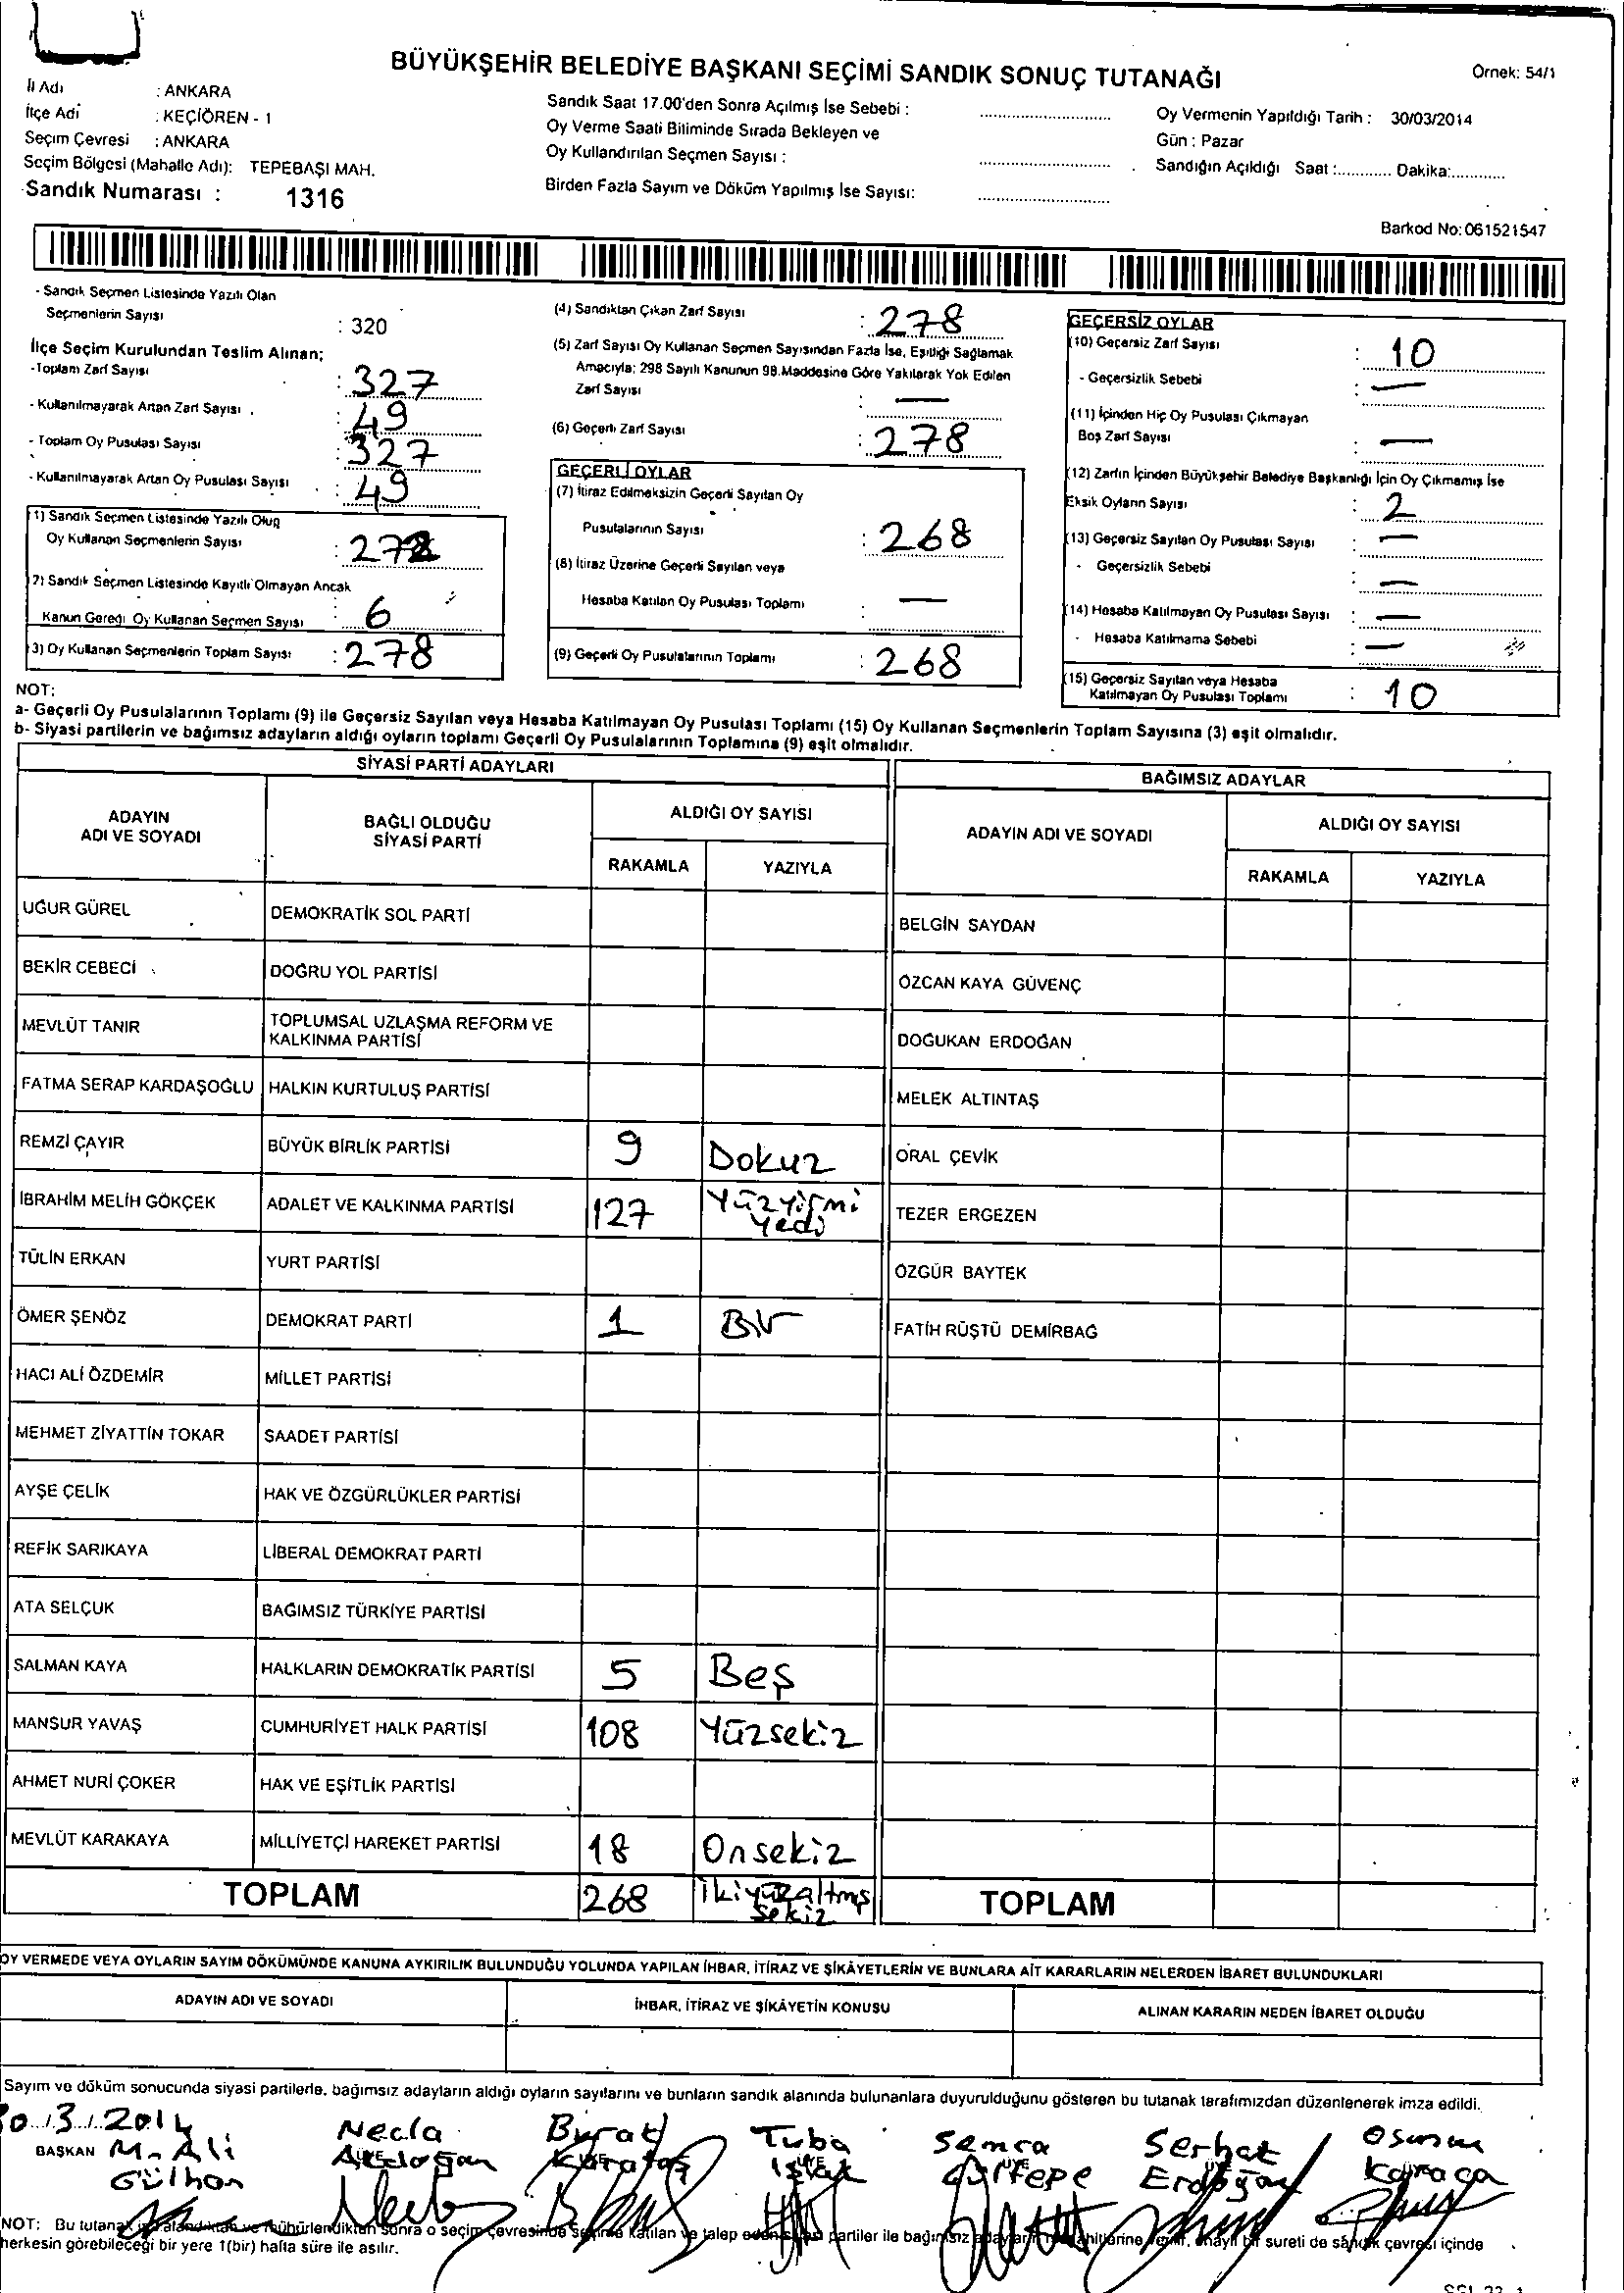 BÜYÜKŞEHİR BELEDİYE BAŞKANI SEÇİMİ SANDIK SONUÇ TUTANAĞI
Örnek: 54/1
İl Adı : ANKARA
İlçe Adi : KEÇİÖREN - 1
Seçim Çevresi : ANKARA
Seçim Bölgesi (Mahalle Adı): TEPEBAŞI MAH.
Sandık Numarası : 1316
Sandık Saat 17.00'den Sonra Açılmış İse Sebebi :
Oy Verme Saati Bitiminde Sırada Bekleyen ve
Oy Kullandırılan Seçmen Sayısı :
Birden Fazla Sayım ve Döküm Yapılmış İse Sayısı:
Oy Vermenin Yapıldığı Tarih : 30/03/2014
Gün : Pazar
Sandığın Açıldığı Saat :............ Dakika:............
Barkod No: 061521547
- Sandık Seçmen Listesinde Yazılı Olan
Seçmenlerin Sayısı : 320
İlçe Seçim Kurulundan Teslim Alınan;
-Toplam Zarf Sayısı : 327
- Kullanılmayarak Artan Zarf Sayısı : 49
- Toplam Oy Pusulası Sayısı : 327
- Kullanılmayarak Artan Oy Pusulası Sayısı : 49
(1) Sandık Seçmen Listesinde Yazılı Olup
Oy Kullanan Seçmenlerin Sayısı : 272
(2) Sandık Seçmen Listesinde Kayıtlı Olmayan Ancak
Kanun Gereği Oy Kullanan Seçmen Sayısı : 6
(3) Oy Kullanan Seçmenlerin Toplam Sayısı : 278
(4) Sandıktan Çıkan Zarf Sayısı : 278
(5) Zarf Sayısı Oy Kullanan Seçmen Sayısından Fazla İse, Eşitliği Sağlamak
Amacıyla; 298 Sayılı Kanunun 98.Maddesine Göre Yakılarak Yok Edilen
Zarf Sayısı : —
(6) Geçerli Zarf Sayısı : 278
GEÇERLİ OYLAR
(7) İtiraz Edilmeksizin Geçerli Sayılan Oy
Pusulalarının Sayısı : 268
(8) İtiraz Üzerine Geçerli Sayılan veya
Hesaba Katılan Oy Pusulası Toplamı : —
(9) Geçerli Oy Pusulalarının Toplamı : 268
GEÇERSİZ OYLAR
(10) Geçersiz Zarf Sayısı : 10
- Geçersizlik Sebebi : —
(11) İçinden Hiç Oy Pusulası Çıkmayan
Boş Zarf Sayısı : —
(12) Zarfın İçinden Büyükşehir Belediye Başkanlığı İçin Oy Çıkmamış İse
Eksik Oyların Sayısı : 2
(13) Geçersiz Sayılan Oy Pusulası Sayısı : —
- Geçersizlik Sebebi : —
(14) Hesaba Katılmayan Oy Pusulası Sayısı : —
- Hesaba Katılmama Sebebi : —
(15) Geçersiz Sayılan veya Hesaba
Katılmayan Oy Pusulası Toplamı : 10
NOT:
a- Geçerli Oy Pusulalarının Toplamı (9) ile Geçersiz Sayılan veya Hesaba Katılmayan Oy Pusulası Toplamı (15) Oy Kullanan Seçmenlerin Toplam Sayısına (3) eşit olmalıdır.
b- Siyasi partilerin ve bağımsız adayların aldığı oyların toplamı Geçerli Oy Pusulalarının Toplamına (9) eşit olmalıdır.
SİYASİ PARTİ ADAYLARI
ADAYIN
ADI VE SOYADI
BAĞLI OLDUĞU
SİYASİ PARTİ
ALDIĞI OY SAYISI
RAKAMLA YAZIYLA
UĞUR GÜREL DEMOKRATİK SOL PARTİ
BEKİR CEBECİ DOĞRU YOL PARTİSİ
MEVLÜT TANIR TOPLUMSAL UZLAŞMA REFORM VE
KALKINMA PARTİSİ
FATMA SERAP KARDAŞOĞLU HALKIN KURTULUŞ PARTİSİ
REMZİ ÇAYIR BÜYÜK BİRLİK PARTİSİ 9 Dokuz
İBRAHİM MELİH GÖKÇEK ADALET VE KALKINMA PARTİSİ 127 Yüzyirmi
yedi
TÜLİN ERKAN YURT PARTİSİ
ÖMER ŞENÖZ DEMOKRAT PARTİ 1 Bir
HACI ALİ ÖZDEMİR MİLLET PARTİSİ
MEHMET ZİYATTİN TOKAR SAADET PARTİSİ
AYŞE ÇELİK HAK VE ÖZGÜRLÜKLER PARTİSİ
REFİK SARIKAYA LİBERAL DEMOKRAT PARTİ
ATA SELÇUK BAĞIMSIZ TÜRKİYE PARTİSİ
SALMAN KAYA HALKLARIN DEMOKRATİK PARTİSİ 5 Beş
MANSUR YAVAŞ CUMHURİYET HALK PARTİSİ 108 Yüzsekiz
AHMET NURİ ÇOKER HAK VE EŞİTLİK PARTİSİ
MEVLÜT KARAKAYA MİLLİYETÇİ HAREKET PARTİSİ 18 Onsekiz
TOPLAM 268 ikiyüzaltmış
sekiz
BAĞIMSIZ ADAYLAR
ADAYIN ADI VE SOYADI
ALDIĞI OY SAYISI
RAKAMLA YAZIYLA
BELGİN SAYDAN
ÖZCAN KAYA GÜVENÇ
DOĞUKAN ERDOĞAN
MELEK ALTINTAŞ
ORAL ÇEVİK
TEZER ERGEZEN
ÖZGÜR BAYTEK
FATİH RÜŞTÜ DEMİRBAĞ
TOPLAM
OY VERMEDE VEYA OYLARIN SAYIM DÖKÜMÜNDE KANUNA AYKIRILIK BULUNDUĞU YOLUNDA YAPILAN İHBAR, İTİRAZ VE ŞİKÂYETLERİN VE BUNLARA AİT KARARLARIN NELERDEN İBARET BULUNDUKLARI
ADAYIN ADI VE SOYADI İHBAR, İTİRAZ VE ŞİKÂYETİN KONUSU ALINAN KARARIN NEDEN İBARET OLDUĞU
Sayım ve döküm sonucunda siyasi partilerle, bağımsız adayların aldığı oyların sayılarını ve bunların sandık alanında bulunanlara duyurulduğunu gösteren bu tutanak tarafımızdan düzenlenerek imza edildi.
30.3.2014
BAŞKAN M. Ali Necla Burak Tuba Semra Serhat Osman
Gülhan Akdoğan Karataş Gültepe Erdoğan Karaca
NOT: Bu tutanak sonra o seçim çevresinde seçime katılan ve talep eden siyasi partiler ile bağımsız bir sureti de sandık çevresi içinde
herkesin görebileceği bir yere 1(bir) hafta süre ile asılır.